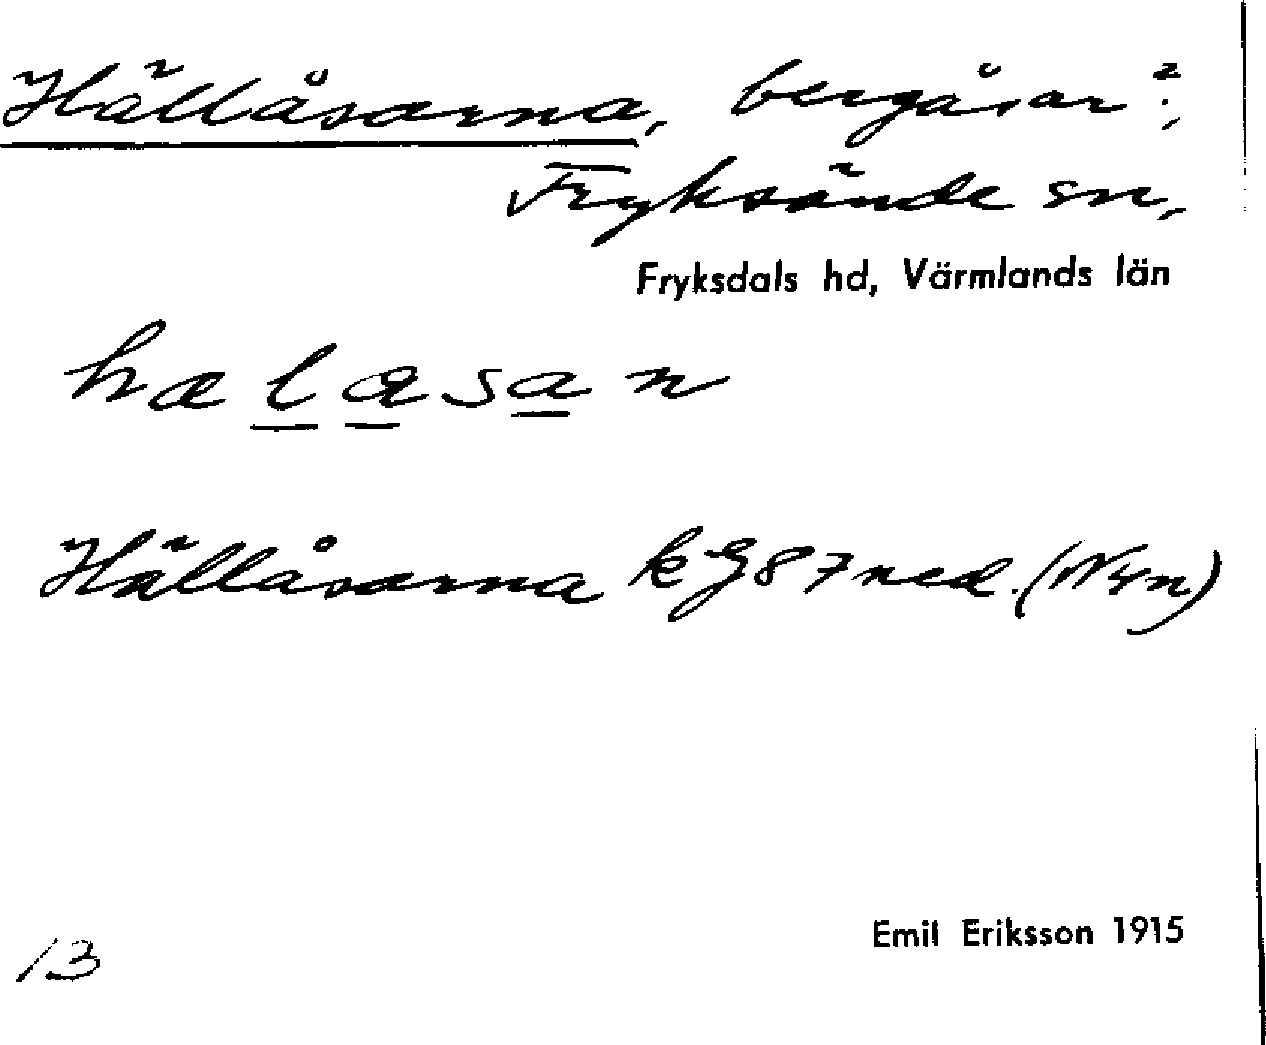 Hällåsarna, bergåsar²;
Fryksände sn,
Fryksdals hd, Värmlands län
Hällåsarna k G 87 ned. (N4n)
Emil Eriksson 1915
13